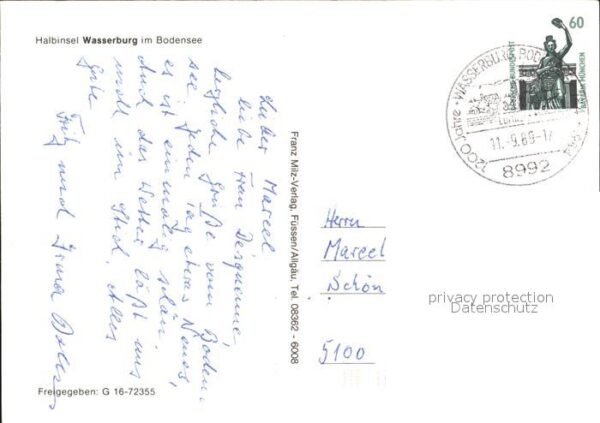 Halbinsel Wasserburg im Bodensee
Lieber Marcel
liebe Frau
herzliche Grüße vom Boden-
see. Jeden Tag etwas Neues,
es ist einmalig schön.
Auch das Wetter läßt uns
nicht im Stich. Alles
Gute
Fritz und Irma
Freigegeben: G 16-72355
Franz Milz-Verlag, Füssen/Allgäu, Tel. 08362 - 6008
60
DEUTSCHE BUNDESPOST
BAVARIA MÜNCHEN
1200 Jahre · WASSERBURG BOD
11.-9.89-17
8992
Herrn
Marcel
Schön
5100
privacy protection
Datenschutz